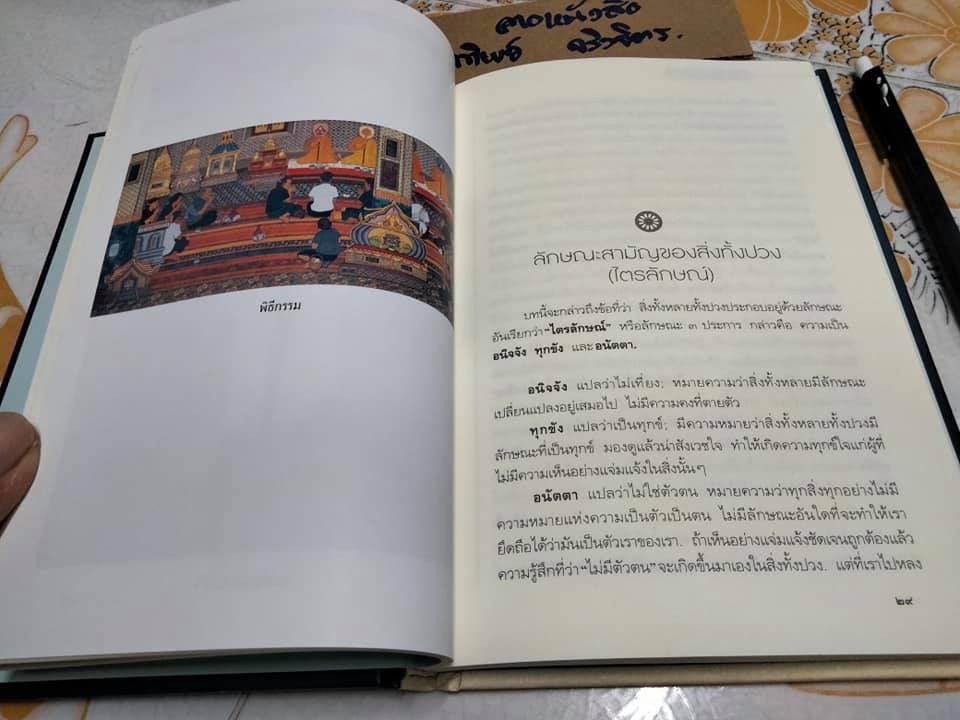 ตอหนังสือ
พิธีกรรม
ลักษณะสามัญของสิ่งทั้งปวง
(ไตรลักษณ์)
บทนี้จะกล่าวถึงข้อที่ว่า สิ่งทั้งหลายทั้งปวงประกอบอยู่ด้วยลักษณะ
อันเรียกว่า“ไตรลักษณ์” หรือลักษณะ ๓ ประการ กล่าวคือ ความเป็น
อนิจจัง ทุกขัง และอนัตตา.
อนิจจัง แปลว่าไม่เที่ยง; หมายความว่าสิ่งทั้งหลายมีลักษณะ
เปลี่ยนแปลงอยู่เสมอไป ไม่มีความคงที่ตายตัว
ทุกขัง แปลว่าเป็นทุกข์; มีความหมายว่าสิ่งทั้งหลายทั้งปวงมี
ลักษณะที่เป็นทุกข์ มองดูแล้วน่าสังเวชใจ ทำให้เกิดความทุกข์ใจแก่ผู้ที่
ไม่มีความเห็นอย่างแจ่มแจ้งในสิ่งนั้นๆ
อนัตตา แปลว่าไม่ใช่ตัวตน หมายความว่าทุกสิ่งทุกอย่างไม่มี
ความหมายแห่งความเป็นตัวเป็นตน ไม่มีลักษณะอันใดที่จะทำให้เรา
ยึดถือได้ว่ามันเป็นตัวเราของเรา. ถ้าเห็นอย่างแจ่มแจ้งชัดเจนถูกต้องแล้ว
ความรู้สึกที่ว่า“ไม่มีตัวตน”จะเกิดขึ้นมาเองในสิ่งทั้งปวง. แต่ที่เราไปหลง
๒๙